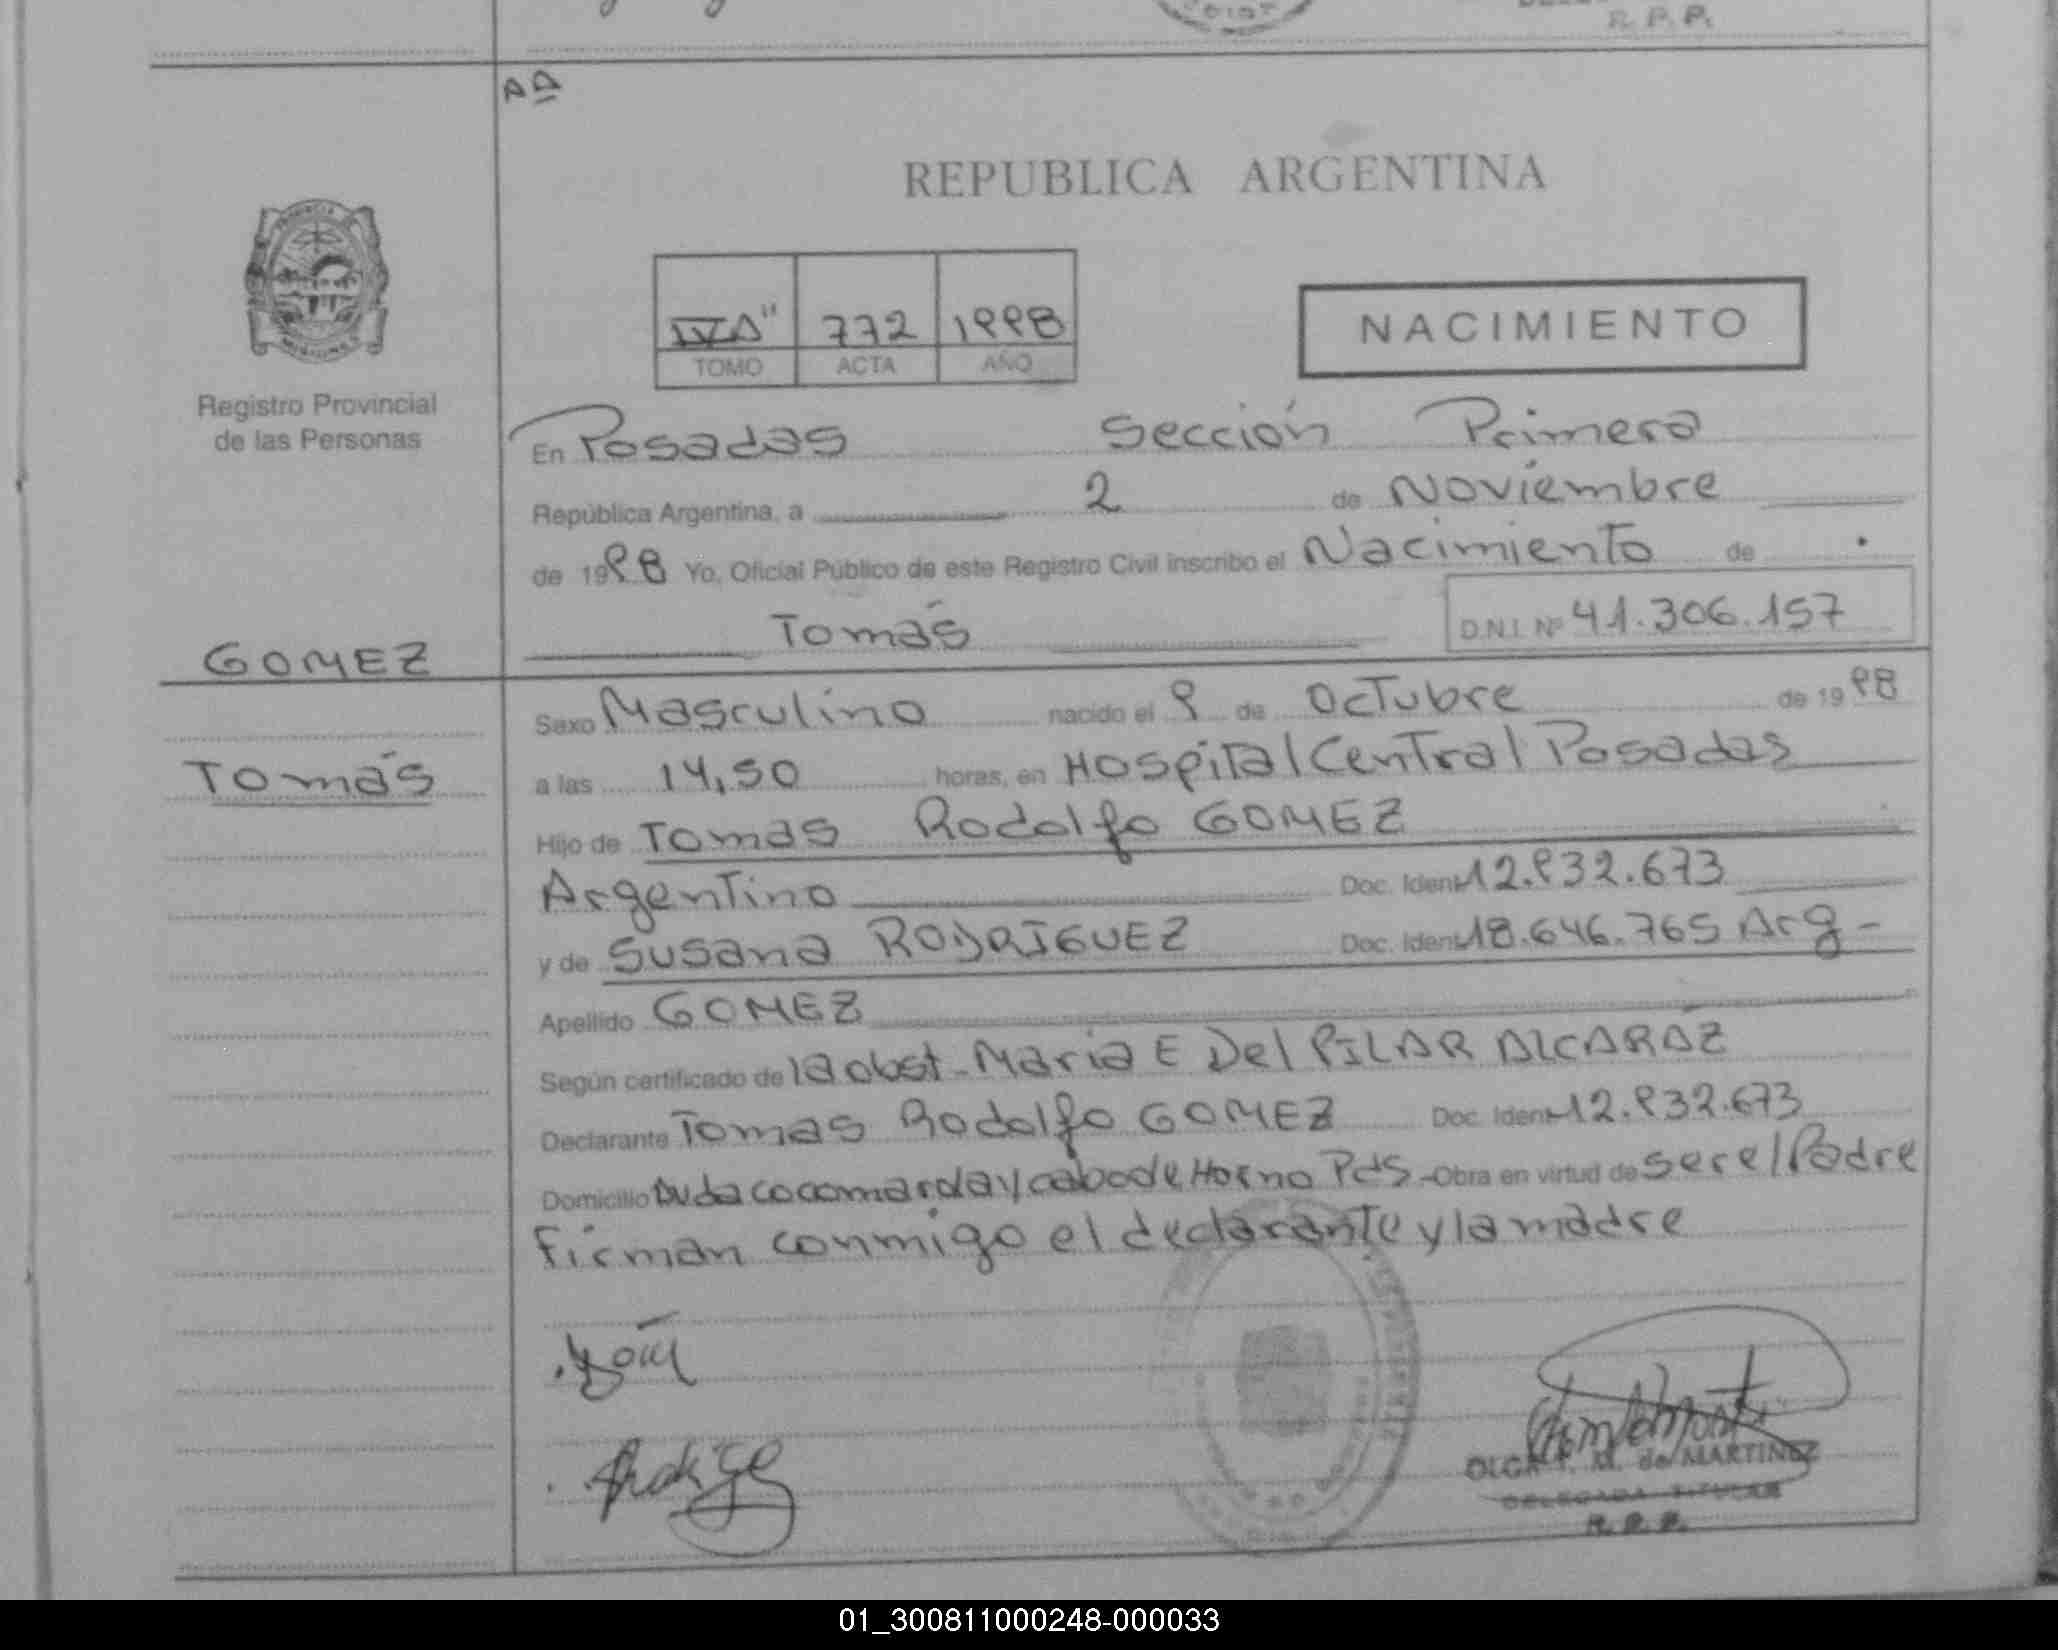 R. P. P.
AA
REPUBLICA ARGENTINA
IVA" 772 1998
TOMO ACTA AÑO
NACIMIENTO
Registro Provincial
de las Personas
En Posadas Sección Primera
República Argentina, a 2 de Noviembre
de 1998 Yo, Oficial Público de este Registro Civil inscribo el Nacimiento de
Tomás D.N.I. Nº 41.306.157
GOMEZ
Tomás
Sexo Masculino nacido el 9 de Octubre de 1998
a las 14,50 horas, en Hospital Central Posadas
Hijo de Tomas Rodolfo GOMEZ
Argentino Doc. Ident. 12.932.673
y de Susana RODRIGUEZ Doc. Ident. 18.646.765 Arg -
Apellido GOMEZ
Según certificado de la obst. Maria E Del PILAR ALCARAZ
Declarante Tomas Rodolfo GOMEZ Doc. Ident. 12.932.673
Domicilio Avda cocomarola y cabo de Horno Pdas - Obra en virtud de ser el Padre
Firman conmigo el declarante y la madre
OLGA T. M. de MARTINEZ
DELEGADA TITULAR
R. P. P.
01_300811000248-000033